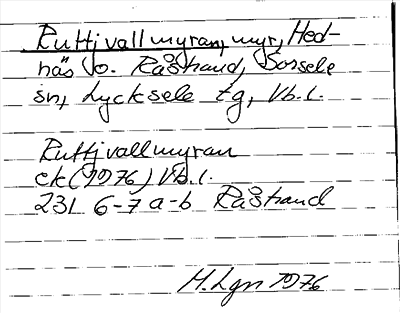 Ruttjvallmyran, myr, Hed-
näs o. Råstrand, Sorsele
sn, Lycksele tg, Vb. l.
Ruttjvallmyran
ek (1976) Vb. l.
23I 6-7 a-b Råstrand
H. Lgn 1976